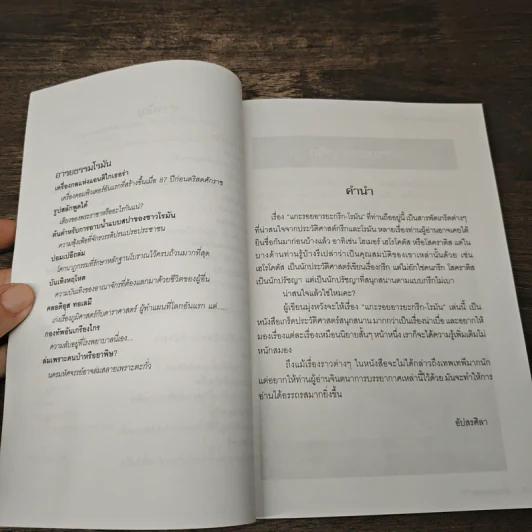 อารยธรรมโรมัน
เครื่องกลแห่งแอนติไกเธอร่า
เครื่องคอมพิวเตอร์อันแรกที่สร้างขึ้นเมื่อ 87 ปีก่อนคริสตศักราช
รูปสลักพูดได้
เสียงของพระราชาหรืออะไรกันแน่?
ต้นตำหรับการอาบน้ำแบบสปาของชาวโรมัน
ความฟุ้งเฟ้อที่จักรวรรดิปรนเปรอประชาชน
ปอมเปอีถล่ม
โศกนาฏกรรมที่ศึกษาหลักฐานโบราณไว้ครบถ้วนมากที่สุด
บันเทิงหฤโหด
ความบันเทิงของอาณาจักรที่ต้องแลกมาด้วยชีวิตของผู้อื่น
คลอดิอุส ทอเลมี
เก่งเรื่องภูมิศาสตร์กับดาราศาสตร์ ผู้ทำแผนที่โลกอันแรก แต่.....
กองทัพอันเกรียงไกร
ความลับอยู่ที่โรงพยาบาลนี่เอง...
ล่มเพราะคนบ้าหรือยาพิษ?
นครมหัศจรรย์อาจล่มสลายเพราะตะกั่ว
คำนำ
เรื่อง "แกะรอยอารยะกรีก-โรมัน" ที่ท่านถืออยู่นี้ เป็นสารพัดเกร็ดต่างๆ
ที่น่าสนใจจากประวัติศาสตร์กรีกและโรมัน หลายเรื่องท่านผู้อ่านอาจเคยได้
ยินชื่อกันมาก่อนบ้างแล้ว อาทิเช่น โฮเมอร์ เฮโรโดตัส หรือโสคราติส แต่ใน
บางด้านท่านรู้บ้างรึเปล่าว่าเป็นคุณสมบัติของเขาเหล่านั้นด้วย เช่น
เฮโรโดตัส เป็นนักประวัติศาสตร์เขียนเรื่องกรีก แต่ไม่ยักใช่คนกรีก โสคราติส
เป็นนักปรัชญา แต่เป็นนักปรัชญาที่สนุกสนานตามแบบกรีกไม่เบา
น่าสนใจแล้วใช่ไหมคะ?
ผู้เขียนมุ่งหวังจะให้เรื่อง "แกะรอยอารยะกรีก-โรมัน" เล่นนี้ เป็น
หนังสือเกร็ดประวัติศาสตร์สนุกสนาน มากกว่าเป็นเรื่องน่าเบื่อ และอยากให้
มองเรื่องแต่ละเรื่องเหมือนนิยายสั้นๆ หน้าหนึ่ง เราก็จะได้ความรู้เพิ่มเติมไม่
หนักสมอง
ถึงแม้เรื่องราวต่างๆ ในหนังสือจะไม่ได้กล่าวถึงเทพเทพีมากนัก
แต่อยากให้ท่านผู้อ่านจินตนาการบรรยากาศเหล่านี้ไว้ด้วย มันจะทำให้การ
อ่านได้อรรถรสมากยิ่งขึ้น
อัปสรศิลา